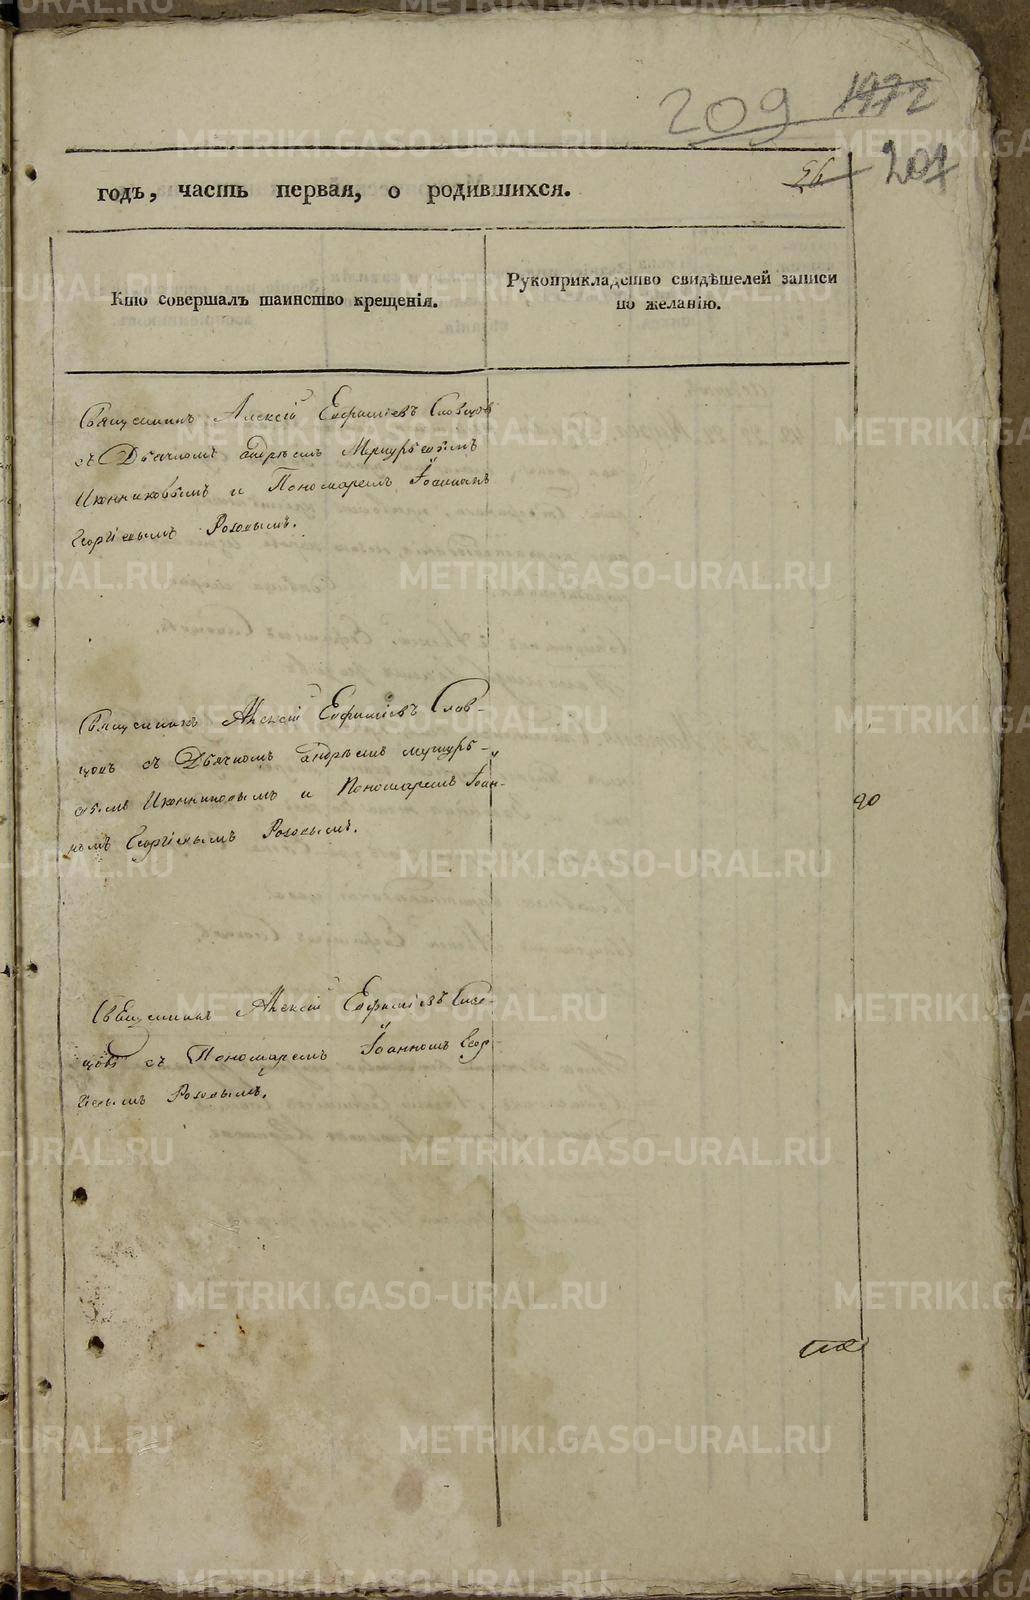 209 1972
годъ, часть первая, о родившихся.
207
Кто совершалъ таинство крещенія.
Рукоприкладство свидѣтелей записи
по желанію.
Священникъ Алексій Евфиміевъ Словцов
съ Дьячкомъ андрѣемъ Меркурьевымъ
Иконниковымъ и Пономаремъ Іоанномъ
Георгіевымъ Розовымъ.
Священникъ Алексій Евфиміевъ Слов-
цовъ съ Дьячкомъ андрѣемъ меркурь-
евымъ Иконниковымъ и Пономаремъ Іоан-
номъ Георгіевымъ Розовымъ.
90
Священникъ Алексій Евфиміевъ Слов-
цовъ съ Пономаремъ Іоанномъ Геор
гіевымъ Розовымъ.
METRIKI.GASO-URAL.RU